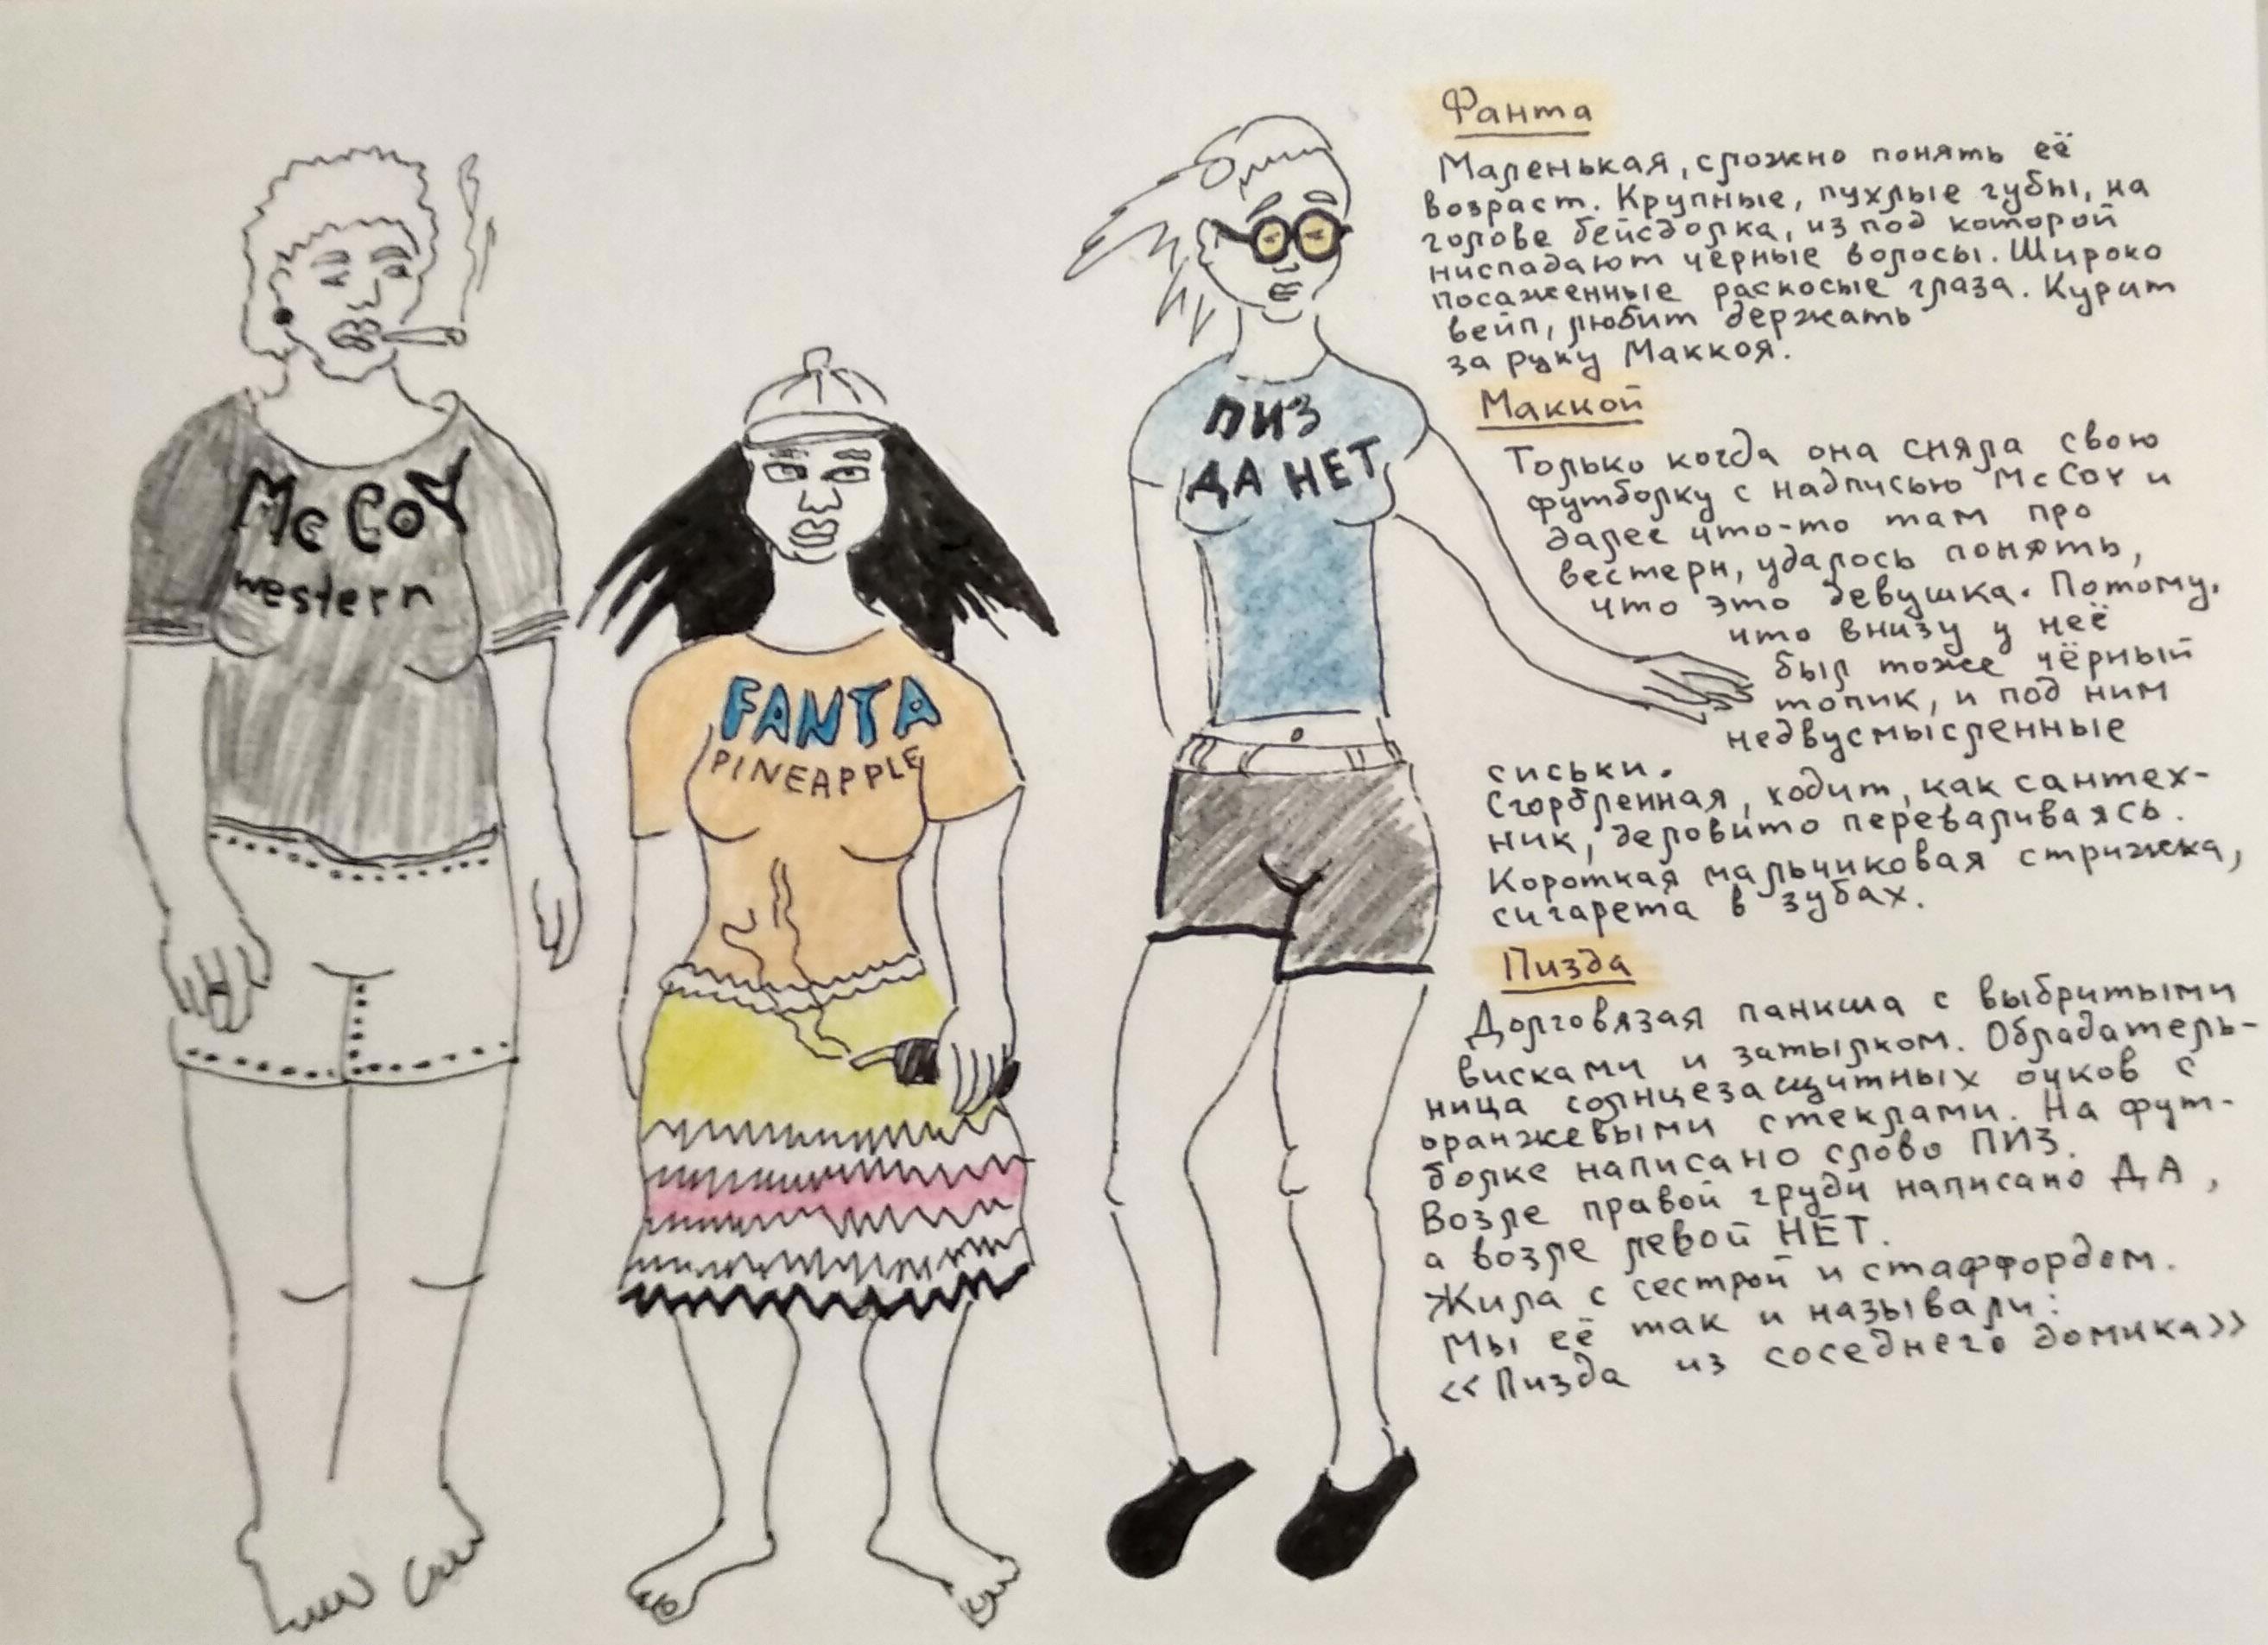 McCoy
western
FANTA
PINEAPPLE
ПИЗ
ДА НЕТ
Фанта
Маленькая, сложно понять её
возраст. Крупные, пухлые губы, на
голове бейсболка, из под которой
ниспадают чёрные волосы. Широко
посаженные раскосые глаза. Курит
вейп, любит держать
за руку Маккоя.
Маккой
Только когда она сняла свою
футболку с надписью McCoy и
далее что-то там про
вестерн, удалось понять,
что это девушка. Потому,
что внизу у неё
был тоже чёрный
топик, и под ним
недвусмысленные
сиськи.
Сгорбленная, ходит, как сантех-
ник, деловито переваливаясь.
Короткая мальчиковая стрижка,
сигарета в зубах.
Пизда
Долговязая панкша с выбритыми
висками и затылком. Обладатель-
ница солнцезащитных очков с
оранжевыми стеклами. На фут-
болке написано слово ПИЗ.
Возле правой груди написано ДА,
а возле левой НЕТ.
Жила с сестрой и стаффордом.
Мы её так и называли:
<<Пизда из соседнего домика>>